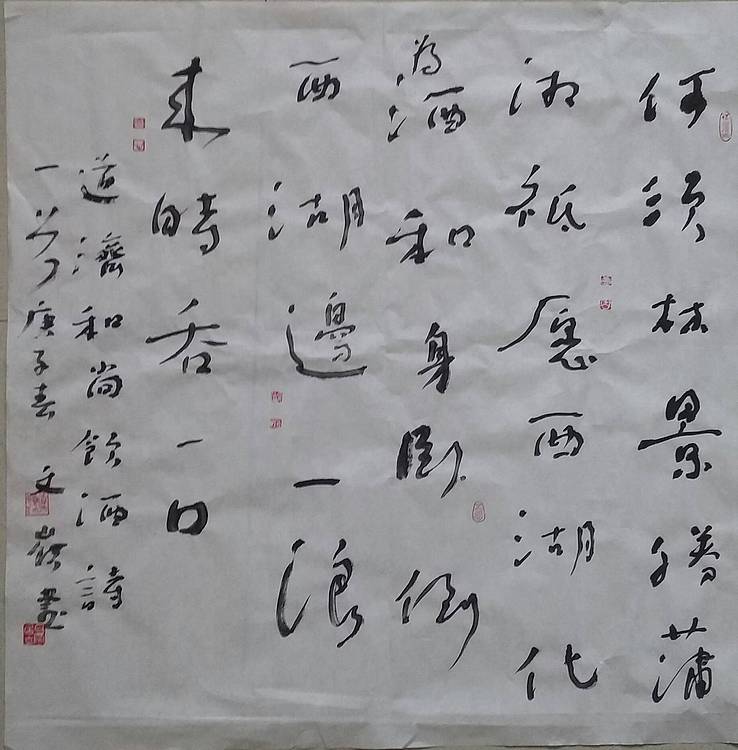 何須林景勝瀟
湘祇愿西湖化
為酒和身臥倒
西湖邊一浪
来時吞一口
道濟和尚飲酒詩
一首庚子春文書